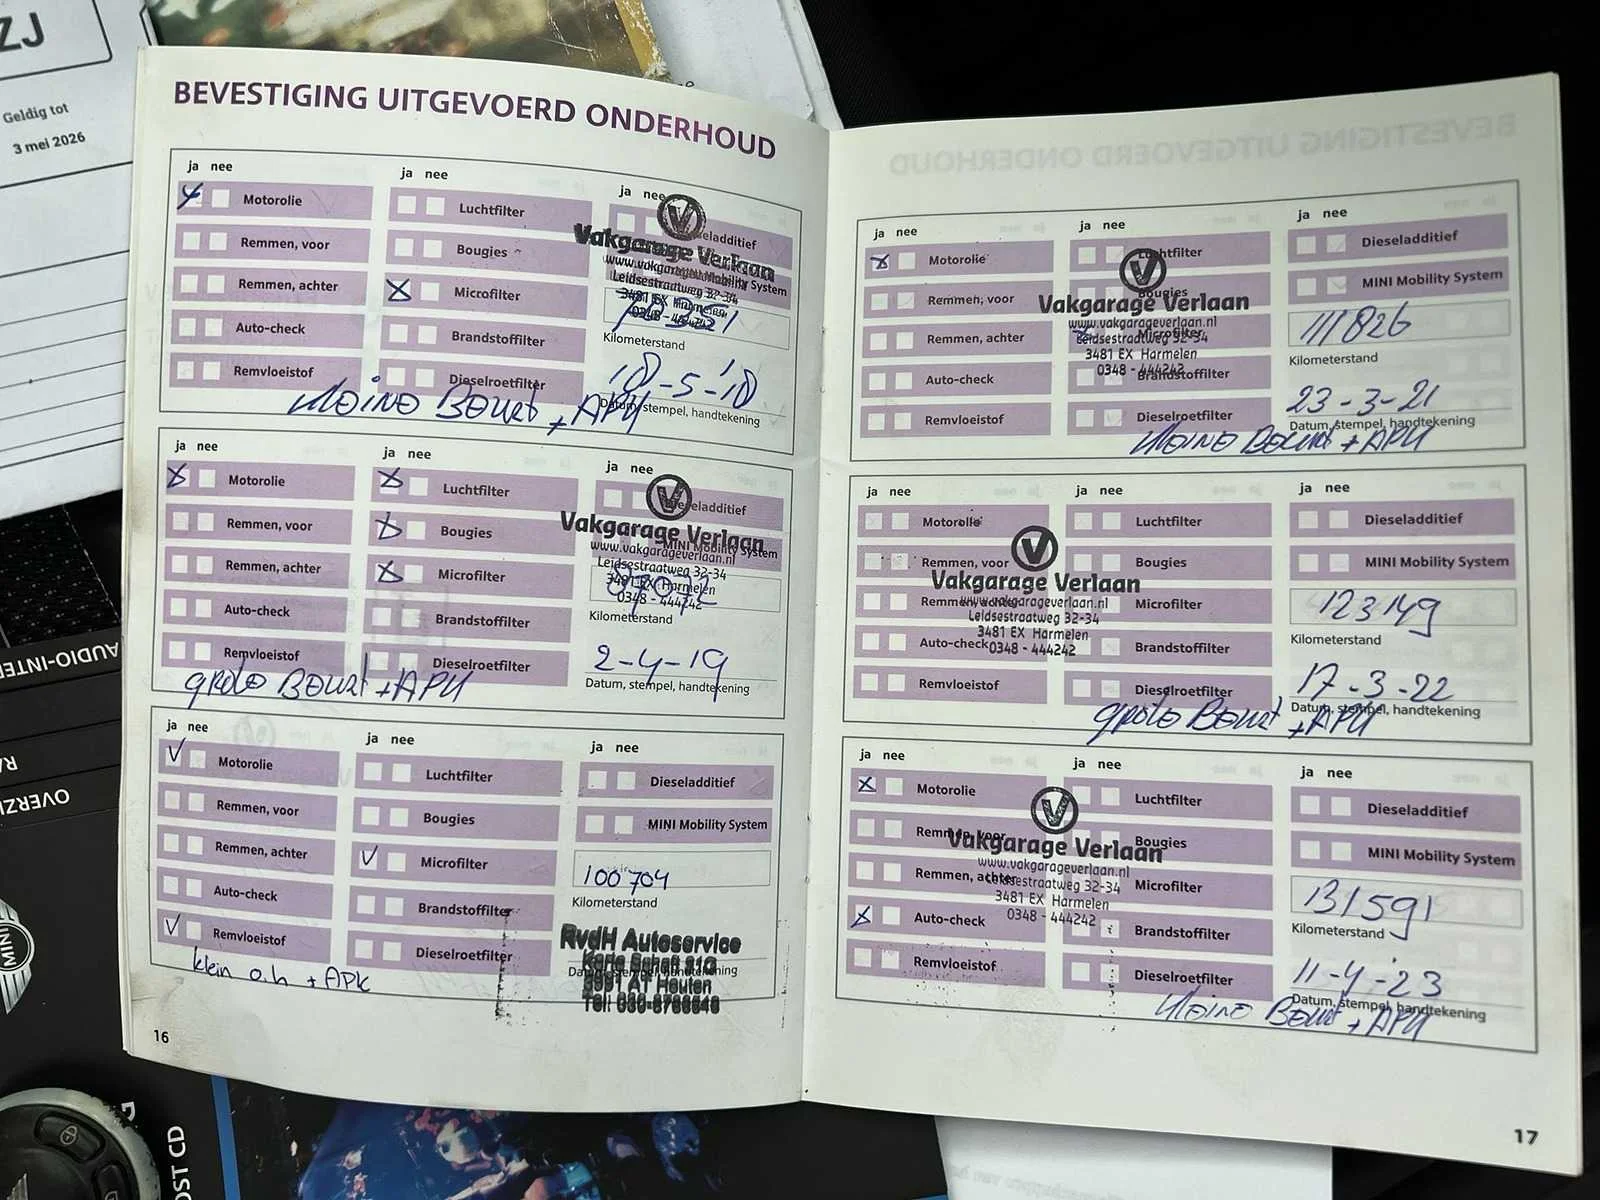 ZJ
Geldig tot
3 mei 2026
BEVESTIGING UITGEVOERD ONDERHOUD
ja nee
Motorolie
Remmen, voor
Remmen, achter
Auto-check
Remvloeistof
ja nee
Luchtfilter
Bougies
Microfilter
Brandstoffilter
Dieselroetfilter
ja nee
Vakgarage Verlaan
www.vakgarageverlaan.nl
Leidsestraatweg 32-34
3481 EX Harmelen
0348 - 444242
Kilometerstand
18-5-18
Datum, stempel, handtekening
kleine Beurt + APK
ja nee
Motorolie
Remmen, voor
Remmen, achter
Auto-check
Remvloeistof
ja nee
Luchtfilter
Bougies
Microfilter
Brandstoffilter
Dieselroetfilter
ja nee
Dieseladditief
MINI Mobility System
Vakgarage Verlaan
www.vakgarageverlaan.nl
Leidsestraatweg 32-34
3481 EX Harmelen
0348 - 444242
Kilometerstand
2-4-19
Datum, stempel, handtekening
grote Beurt + APK
ja nee
Motorolie
Remmen, voor
Remmen, achter
Auto-check
Remvloeistof
ja nee
Luchtfilter
Bougies
Microfilter
Brandstoffilter
Dieselroetfilter
ja nee
Dieseladditief
MINI Mobility System
100704
Kilometerstand
RvdH Autoservice
Datum, stempel, handtekening
klein o.h + APK
16
ja nee
Motorolie
Remmen, voor
Remmen, achter
Auto-check
Remvloeistof
ja nee
Luchtfilter
Bougies
Microfilter
Brandstoffilter
Dieselroetfilter
Vakgarage Verlaan
www.vakgarageverlaan.nl
Leidsestraatweg 32-34
3481 EX Harmelen
0348 - 444242
ja nee
Dieseladditief
MINI Mobility System
111826
Kilometerstand
23-3-21
Datum, stempel, handtekening
kleine Beurt + APK
ja nee
Motorolie
Remmen, voor
Remmen, achter
Auto-check
Remvloeistof
Vakgarage Verlaan
www.vakgarageverlaan.nl
Leidsestraatweg 32-34
3481 EX Harmelen
0348 - 444242
ja nee
Luchtfilter
Bougies
Microfilter
Brandstoffilter
Dieselroetfilter
ja nee
Dieseladditief
MINI Mobility System
123149
Kilometerstand
17-3-22
Datum, stempel, handtekening
grote Beurt + APK
ja nee
Motorolie
Remmen, voor
Remmen, achter
Auto-check
Remvloeistof
Vakgarage Verlaan
www.vakgarageverlaan.nl
Leidsestraatweg 32-34
3481 EX Harmelen
0348 - 444242
ja nee
Luchtfilter
Bougies
Microfilter
Brandstoffilter
Dieselroetfilter
ja nee
Dieseladditief
MINI Mobility System
131591
Kilometerstand
11-4-23
Datum, stempel, handtekening
kleine Beurt + APK
17
MINI
OST CD